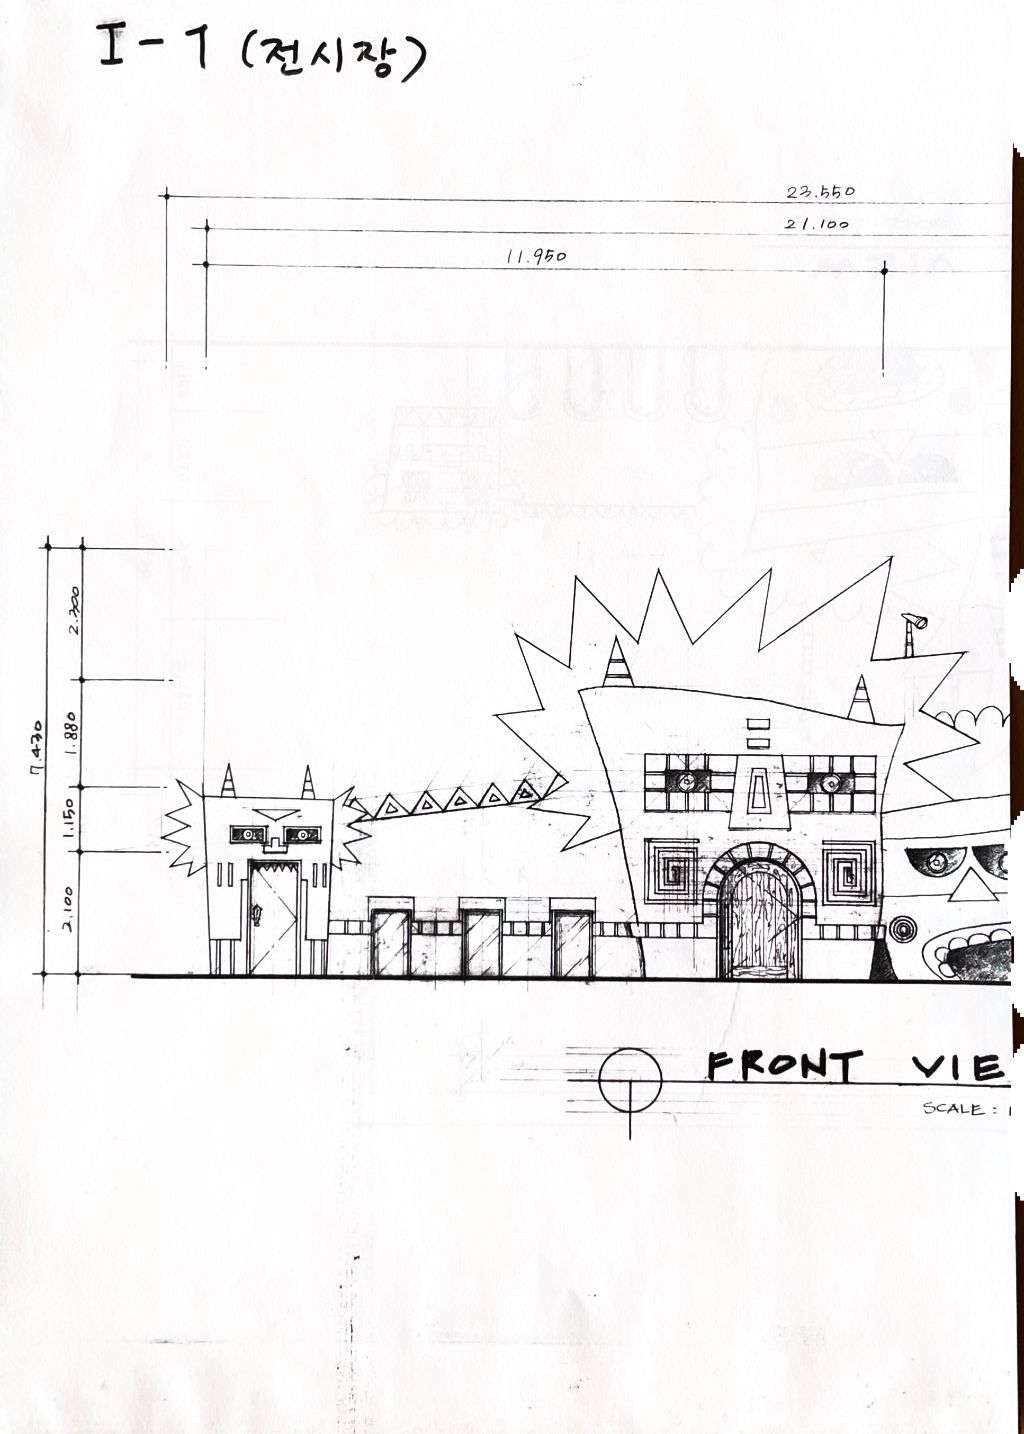 I-1 (전시장)
23.550
21.100
11.950
2.300
1.880
7.430
1.150
2.100
FRONT VIE
SCALE : 1